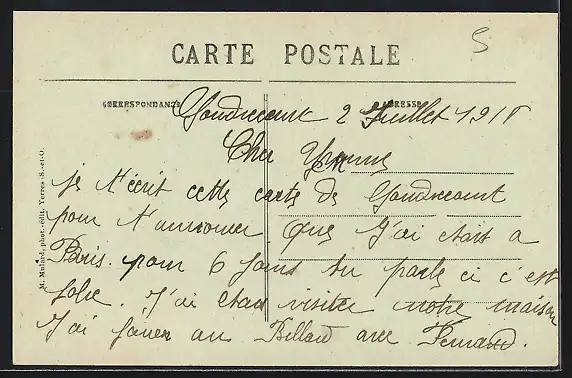 5
CARTE POSTALE
CORRESPONDANCE
ADRESSE
Gondrecourt 2 Juillet 1918
Cher Yvonne
je t'écrit cette carte de Gondrecourt
pour t'annoncer que J'ai etait a
Paris. pour 6 jours tu parle si c'est
folie. J'ai etais visiter notre maison
J'ai jouer au Billard avec Fernand.
M. Mulard, phot.-édit. Yerres (S.-et-O.